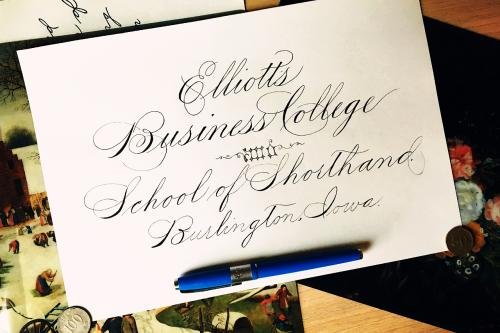 Elliotts
Business College
School of Shorthand.
Burlington, Iowa.